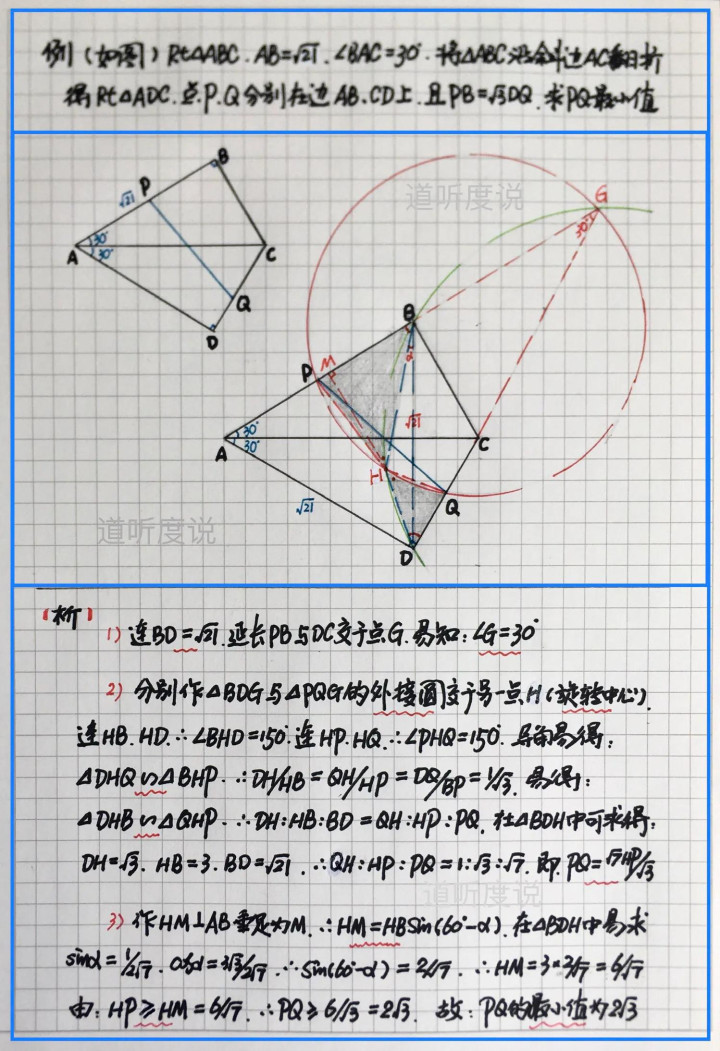 例(如图)Rt△ABC.AB=√21.∠BAC=30°.将△ABC沿斜边AC翻折
得Rt△ADC.点P.Q分别在边AB、CD上.且PB=√3DQ.求PQ最小值
道听度说
B
P
√21
30°
30°
A
C
Q
D
G
30°
B
α
M
P
√21
30°
30°
A
C
H
Q
√21
D
道听度说
【析】
1)连BD=√21.延长PB与DC交于点G.易知:∠G=30°
2)分别作△BDG与△PQG的外接圆交于另一点H(旋转中心).
连HB.HD.∴∠BHD=150°.连HP.HQ.∴∠PHQ=150°.导角易得:
△DHQ∽△BHP.∴DH/HB=QH/HP=DQ/BP=1/√3.易得:
△DHB∽△QHP.∴DH:HB:BD=QH:HP:PQ.在△BDH中可求得:
DH=√3.HB=3.BD=√21.∴QH:HP:PQ=1:√3:√7.即.PQ=√7HP/√3
道听度说
3)作HM⊥AB垂足为M.∴HM=HBSin(60°-α).在△BDH中易求
sinα=1/2√7.cosα=3√3/2√7.∴Sin(60°-α)=2/√7.∴HM=3×2/√7=6/√7
由:HP≥HM=6/√7.∴PQ≥6/√3=2√3.故:PQ的最小值为2√3